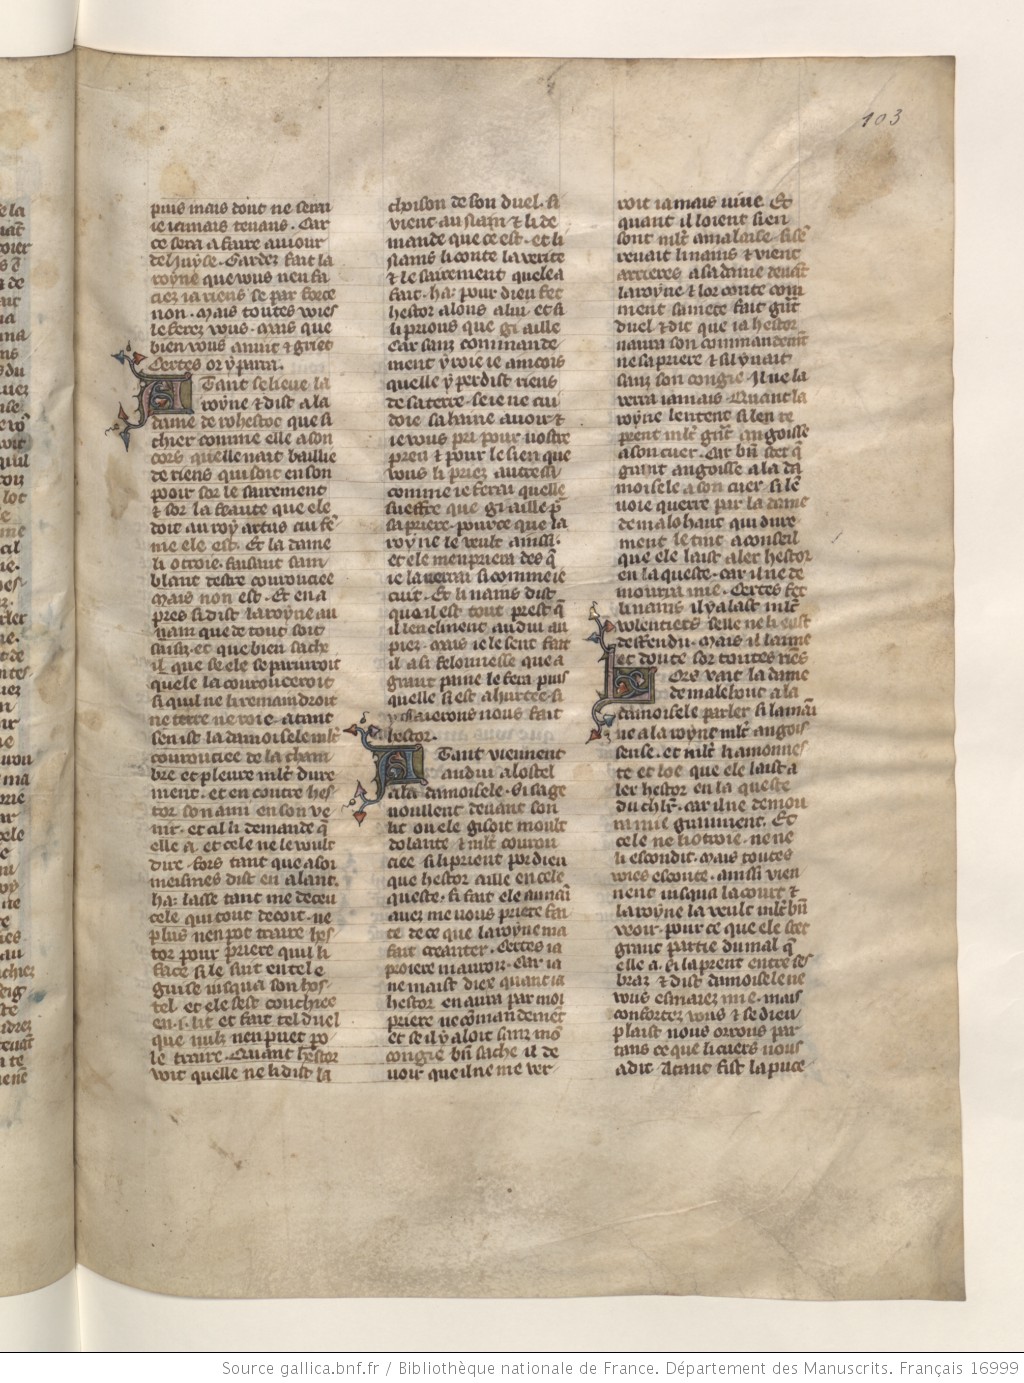 103
puis mais dont ne serai
ie iamais tenans. Car
ce sera a faire au iour
del iuyse. Gardez fait la
royne que vous nen fa
ciez ia riens se par force
non. Mais toutes voies
le ferez vous. Mais que
bien vous anuit & griet
Certes or y parra.
Atant se lieue la
royne & dist a la
dame de rohestoc que si
chier comme elle a son
cors quelle nait baillie
de riens qui soit en son
pooir sor le sairement
& sor la feaute que ele
doit au roy artus cui fe
me ele est. Et la dame
li otroie faisant sam
blant destre couroucee
Mais non est. Et en a
pres si dist la royne au
nain que de tout soit
saisi. et que bien sache
il que se ele se paruroit
quele la couronceroit
si quil ne li remaindroit
ne terre ne voie. atant
sen ist la damoisele mlt
couroucee de la cham
bre et pleure mlt dure
ment. et encontre hes
tor son ami en son ve
nir. et al li demande q̄
elle a. et cele ne le voult
dire. fors tant que a soi
meismes dist en alant.
ha: lasse tant me deceu
cele qui tout decoit. ne
plus nen pot traire hes
tor pour priere quil li
face si le suit en tel e
guise iusqua son hos
tel. et ele sest couchiee
en .i. lit et fait tel duel
que nulz nen puet po
le traire. Quant hestor
voit quelle ne li dist la
choison de son duel. si
vient au nain & li de
mande que ce est. et li
nains li conte la verite
& le sairement quele a
fait. ha: pour dieu fet
hestor alons a lui et si
li prions que gi aille
Car sanz commande
ment y roie ie amcois
quelle y perdist riens
de sa terre. se ie ne cui
doie sa haine auoir &
ie vous pri pour vostre
preu & pour le sien que
vous li priez autressi
comme ie ferai quelle
sueffre que gi aille p̄
sa priere. pour ce que la
royne le veult aussi.
et ele men priera des q̄
ie la verrai si comme ie
cuit. Et li nains dist
quo il est tout prest q̄
il len clinent audui au
pier. Mais ie le sent fait
il a si felonnesse que a
grant paine le fera puis
quelle si est ahurtee. si
y essaierons nous fait
hestor.
Atant viennent
audui a lostel
a la damoisele. Si sage
noullent deuant son
lit ou ele gisoit moult
dolante & mlt courou
ciee. si li prient por dieu
que hestor aille en cele
queste. si fait ele aussi
auez me vous priere fai
te de ce que la royne ma
fait creanter. Certes ia
proiere ni auroit. Car ia
ne maist diex quant ia
hestor en aura par moi
priere ne cōmandement
et se il y aloit sanz mō
congie bn̄ sache il de
uoir que il ne me ver
roit iamais viue. Et
quant il loient si en
sont mlt a malaise. si sē
reuait li nains & vient
arrieres a sa dame deuāt
la royne & lor conte com
ment sa niece fait grāt
duel & dit que ia hestor
naura son commandemt̄
ne sa priere & sil y uait
sanz son congie. Il ne la
verra iamais. Quant la
royne lentent si len re
prent mlt grāt angoisse
a son cuer. Car bn̄ set q̄
grant angoisse a la da
moisele a son cuer. si lē
uoie querre par la dame
de malohaut qui dure
ment le tint a conseil
que ele laist aler hestor
en la queste. car il ne de
mourra mie. Certes fet
li nains il y alast mlt
volentiers selle ne li eust
deffendu. Mais il laime
et doute sor toutes riēs
Lors vait la dame
de malehout a la
damoisele parler si lamai
ne a la royne mlt angois
seuse. et mlt hamonnes
te et loe que ele laist a
ler hestor en la queste
du chlr̄. car il ne demou
ra mie granment. Et
cele ne li otroie. ne ne
li escondit. Mais toutes
voies escoute. ainssi vien
nent iusqua la court &
la royne la veult mlt bn̄
veoir. pour ce que ele set
grant partie du mal q̄
elle a. si la prent entre ses
braz & dist damoisele ne
vous esmaiez mie. mais
confortez vous & se dieu
plaist nous orrons par
tans ce que li cuers nous
a dit. Atant fist la puce
Source gallica.bnf.fr / Bibliothèque nationale de France. Département des Manuscrits. Français 16999